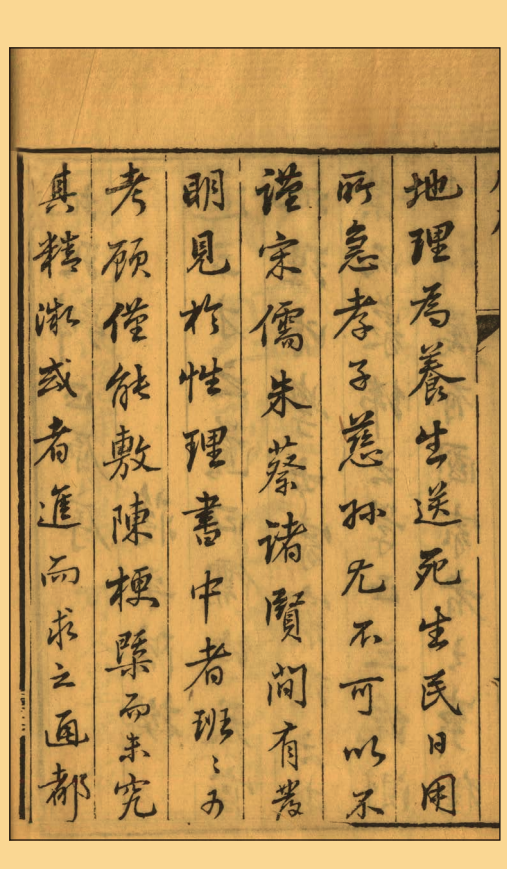 地理為養生送死生民日用
所急孝子慈孫尤不可以不
謹宋儒朱蔡諸賢間有發
明見於性理書中者班〻可
考顧僅能敷陳梗槩而未究
其精微或者進而求之通都